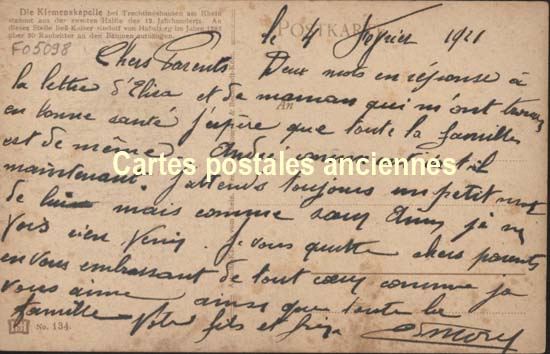 Die Klemenskapelle bei Trechtingshausen am Rhein
stammt aus der zweiten Hälfte des 12. Jahrhunderts. An
dieser Stelle ließ Kaiser Rudolf von Habsburg im Jahre
über 30 Raubritter an den Bäumen aufhängen.
POSTKARTE
FO5098
le Février 1921
Chers Parents
Deux mots en réponse à
la lettre d'Elisa et de maman qui m'ont
An
en bonne santé j'espère que toute la famille
est de même.
Cartes postales anciennes
maintenant j'attends toujours un petit mot
de lui mais comme je ne
vois rien venir. Je vous quitte chers parents
en vous embrassant de tout coeur comme je
vous aime ainsi que toute la
famille Votre fils et
No. 134.